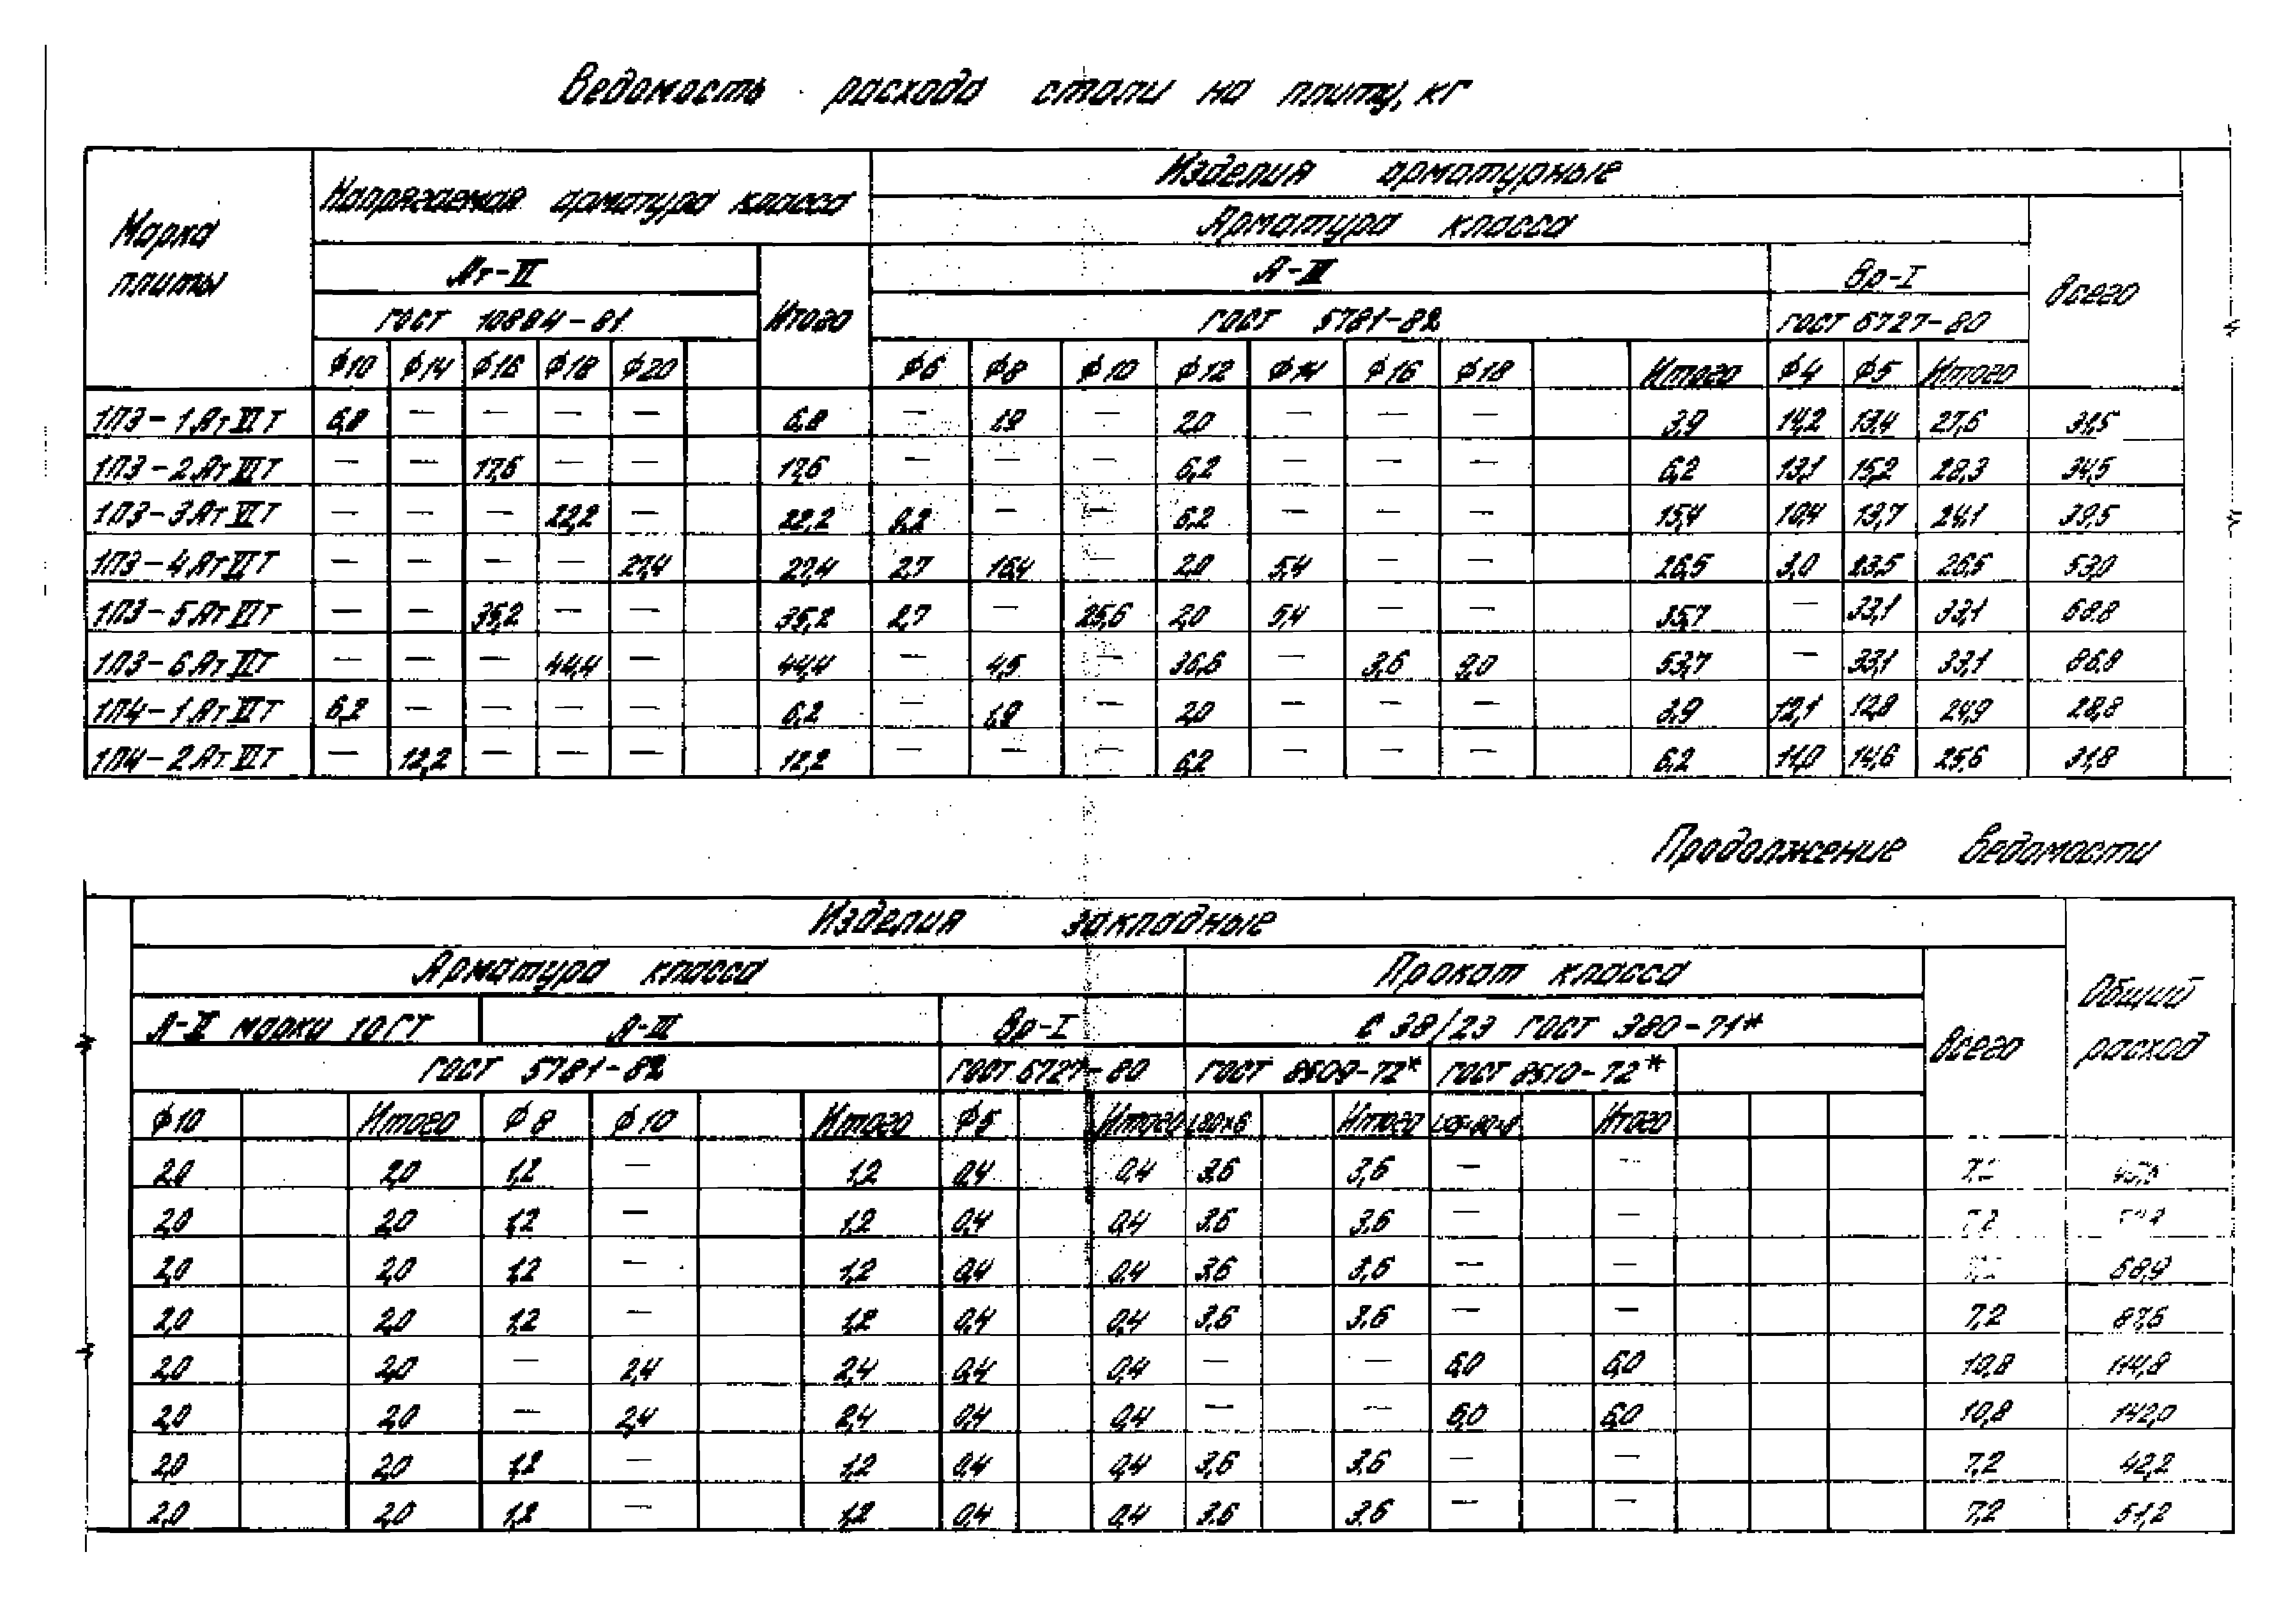 Ведомость расхода стали на плиту, кг
Марка плиты
Напрягаемая арматура класса
Изделия арматурные
Арматура класса
Ат-VI
Итого
А-III
Вр-I
Всего
ГОСТ 10884-81
ГОСТ 5781-82
ГОСТ 6727-80
ф10 ф14 ф16 ф18 ф20 ф6 ф8 ф10 ф12 ф14 ф16 ф18 Итого ф4 ф5 Итого
1П3-1.АтVIТ 6,8 — — — — 6,8 — 1,9 — 2,0 — — — 3,9 14,2 13,4 27,6 31,5
1П3-2.АтVIТ — — 17,6 — — 17,6 — — — 6,2 — — — 6,2 13,1 15,2 28,3 34,5
1П3-3.АтVIТ — — — 22,2 — 22,2 9,2 — — 6,2 — — — 15,4 10,4 13,7 24,1 39,5
1П3-4.АтVIТ — — — — 27,4 27,4 2,7 16,4 — 2,0 5,4 — — 26,5 3,0 23,5 26,5 53,0
1П3-5.АтVIТ — — 35,2 — — 35,2 2,7 — 25,6 2,0 5,4 — — 35,7 — 33,1 33,1 68,8
1П3-6.АтVIТ — — — 44,4 — 44,4 — 4,5 — 36,6 — 3,6 9,0 53,7 — 33,1 33,1 86,8
1П4-1.АтVIТ 6,2 — — — — 6,2 — 1,9 — 2,0 — — — 3,9 12,1 12,8 24,9 28,8
1П4-2.АтVIТ — 12,2 — — — 12,2 — — — 6,2 — — — 6,2 11,0 14,6 25,6 31,8
Продолжение ведомости
Изделия закладные
Общий расход
Арматура класса
Прокат класса
Всего
А-II марки 10ГТ
А-III
Вр-I
С 38/23 ГОСТ 380-71*
ГОСТ 5781-82
ГОСТ 6727-80
ГОСТ 8509-72*
ГОСТ 8510-72*
ф10 Итого ф8 ф10 Итого ф5 Итого L80×6 Итого Итого
2,0 2,0 1,2 — 1,2 0,4 0,4 3,6 3,6 — —
2,0 2,0 1,2 — 1,2 0,4 0,4 3,6 3,6 — — 7,2
2,0 2,0 1,2 — 1,2 0,4 0,4 3,6 3,6 — — 68,9
2,0 2,0 1,2 — 1,2 0,4 0,4 3,6 3,6 — — 7,2 87,6
2,0 2,0 — 2,4 2,4 0,4 0,4 — — 6,0 6,0 10,8 114,8
2,0 2,0 — 2,4 2,4 0,4 0,4 — — 6,0 6,0 10,8 142,0
2,0 2,0 1,2 — 1,2 0,4 0,4 3,6 3,6 — — 7,2 42,2
2,0 2,0 1,2 — 1,2 0,4 0,4 3,6 3,6 — — 7,2 51,2